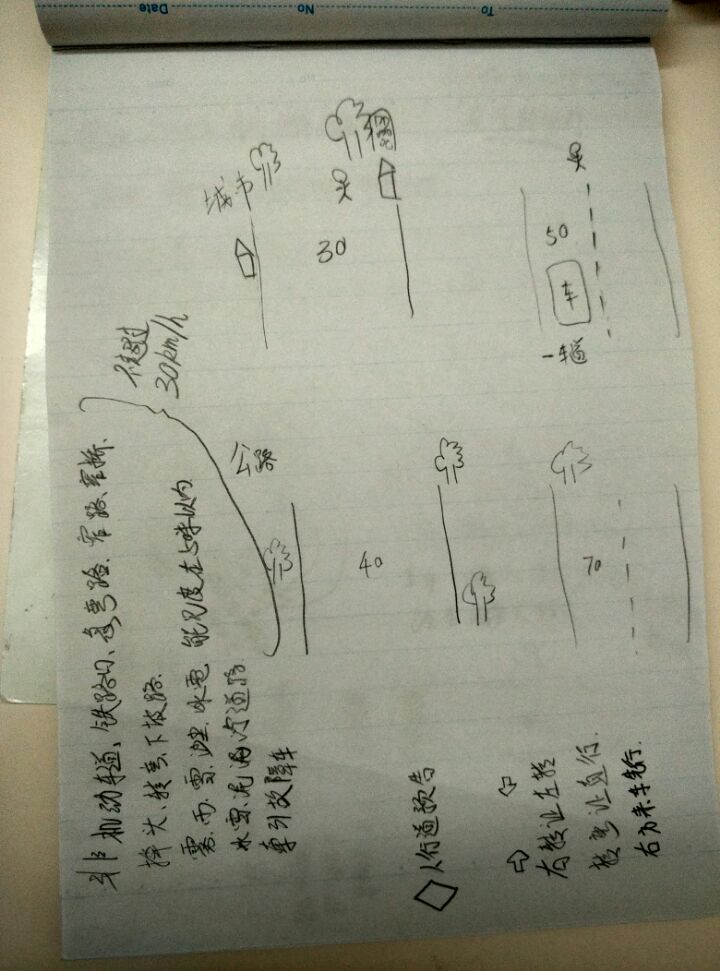 非机动车道、铁路口、急弯路、窄路、窄桥、
掉头、转弯、下坡路
雾、雨、雪、沙尘、冰雹 能见度在50米以内
冰雪、泥泞道路
牵引故障车
不超过
30km/h
城市
30
50
车
一车道
公路
40
70
人行道预告
右转让左转
转弯让直行
右方来车先行
To
No
Date